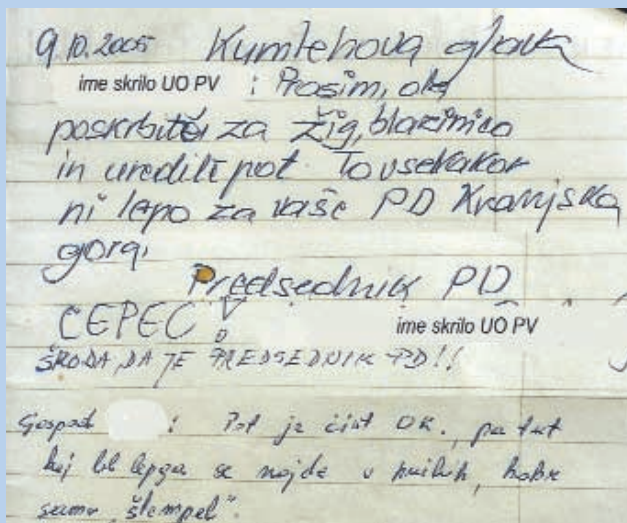 9.10.2005 Kumlehova glava
ime skrilo UO PV : Prosim, da
poskrbite za žig, blazinico
in uredili pot. To vsekakor
ni lepo za vaše PD Kranjska
gora,
Predsednik PD
CEPEC!
ime skrilo UO PV
ŠKODA, DA JE PREDSEDNIK PD!!
Gospod : Pot je čist OK., pa tut
kej bl lepga se najde v hribih, kokr
samo „štempel".